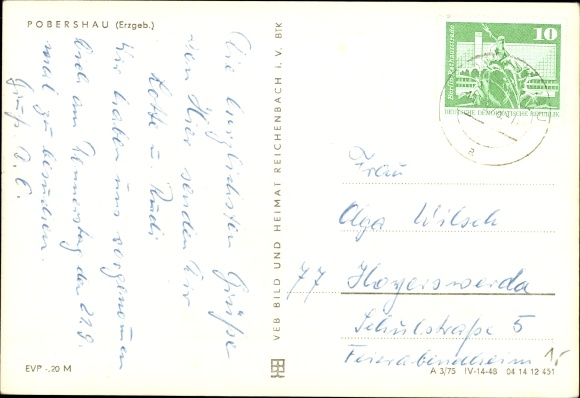 POBERSHAU (Erzgeb.)
Die herzlichsten Grüße
von hier senden Dir
Lotte u. Rudi
Wir haben uns vorgenommen
Dich am Donnerstag den 21.9.
mal zu besuchen.
Gruß D. O.
EVP -.20 M
VEB BILD UND HEIMAT REICHENBACH I. V. BTK
10
Berlin, Rathausstraße
DEUTSCHE DEMOKRATISCHE REPUBLIK
a
Frau
Olga Wilsch
77 Hoyerswerda
Schulstraße 5
Feierabendheim
1,-
A 3/75 IV-14-48 04 14 12 451